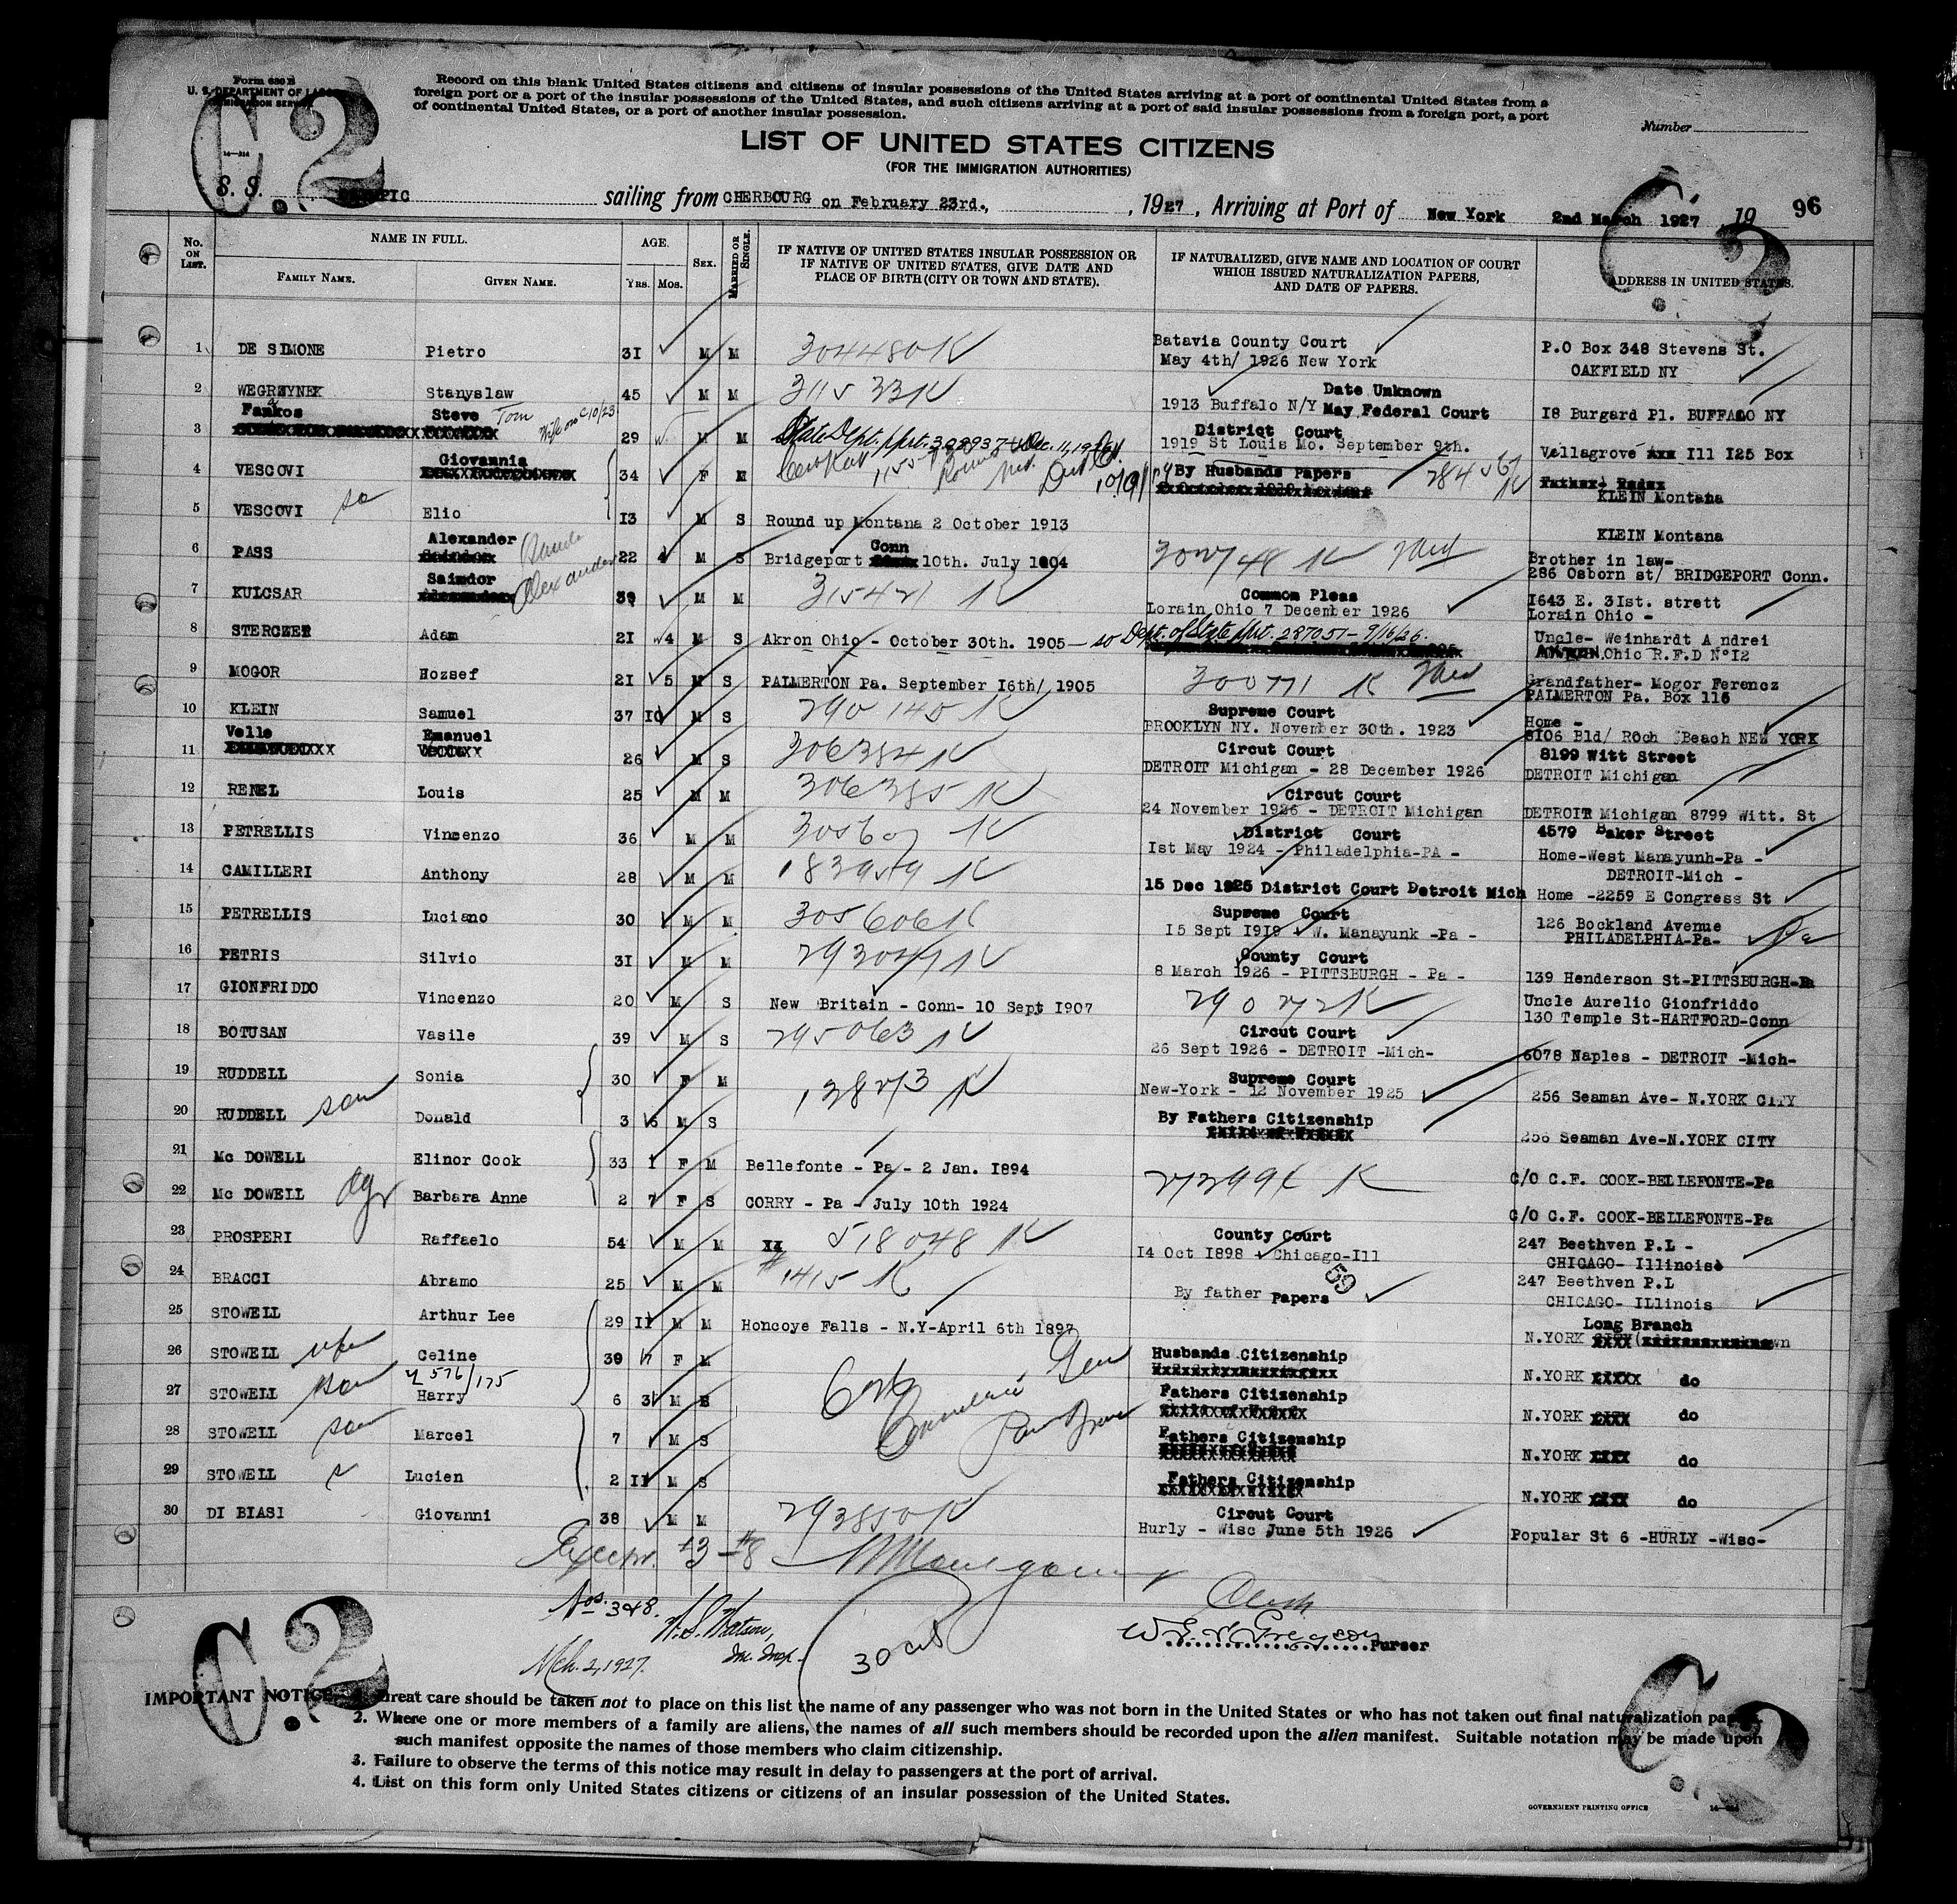 Form 630 B
U. S. DEPARTMENT OF LABOR
IMMIGRATION SERVICE
14—314
C.2
Record on this blank United States citizens and citizens of insular possessions of the United States arriving at a port of continental United States from a
foreign port or a port of the insular possessions of the United States, and such citizens arriving at a port of said insular possessions from a foreign port, a port
of continental United States, or a port of another insular possession.
Number
LIST OF UNITED STATES CITIZENS
(FOR THE IMMIGRATION AUTHORITIES)
S. S. PIC sailing from CHERBOURG on February 23rd., , 1927, Arriving at Port of New York 2nd March 1927 19 96
No. ON LIST. NAME IN FULL. AGE. SEX. MARRIED OR SINGLE. IF NATIVE OF UNITED STATES INSULAR POSSESSION OR IF NATIVE OF UNITED STATES, GIVE DATE AND PLACE OF BIRTH (CITY OR TOWN AND STATE). IF NATURALIZED, GIVE NAME AND LOCATION OF COURT WHICH ISSUED NATURALIZATION PAPERS, AND DATE OF PAPERS. ADDRESS IN UNITED STATES.
FAMILY NAME. GIVEN NAME. YRS. MOS.
1 DE SIMONE Pietro 31 M M 304480 K Batavia County Court May 4th/ 1926 New York P.O Box 348 Stevens St. OAKFIELD NY
2 WEGRZYNEK Stanyslaw 45 M M 311533 K Date Unknown 1913 Buffalo N/Y May Federal Court 18 Burgard Pl. BUFFALO NY
3 Fankos Steve Tom 29 M M State Dept. District Court 1919 St Louis Mo. September 9th. Vellagrove Ill 125 Box
4 VESCOVI Giovannia 34 F M By Husbands Papers KLEIN Montana
5 VESCOVI Elio 13 M S Round up Montana 2 October 1913 KLEIN Montana
6 PASS Alexander 22 4 M S Bridgeport Conn 10th. July 1904 Brother in law- 286 Osborn st/ BRIDGEPORT Conn.
7 KULCSAR Saindor Alexander 39 M M 315421 K Common Pleas Lorain Ohio 7 December 1926 1643 E. 31st. strett Lorain Ohio -
8 STERCZER Adam 21 4 M S Akron Ohio - October 30th. 1905 Dept. of State Ppt. 287051 - 9/16/26. Uncle- Weinhardt A ndrei Ohio R.F.D N°12
9 MOGOR Hozsef 21 5 M S PALMERTON Pa. September 16th/ 1905 300771 K Grandfather- Mogor Ferencz PALMERTON Pa. Box 115
10 KLEIN Samuel 37 10 M S 290140 K Supreme Court BROOKLYN NY. November 30th. 1923 Home - 8106 Bld/ Roch Beach NEW YORK
11 Velle Emanuel 26 M S 306384 K Circut Court DETROIT Michigan - 28 December 1926 8199 Witt Street DETROIT Michigan
12 RENEL Louis 25 M M 306385 K Circut Court 24 November 1926 - DETROIT Michigan DETROIT Michigan 8799 Witt. St
13 PETRELLIS Vincenzo 36 M M 305607 K District Court 1st May 1924 - Philadelphia-PA - 4579 Baker Street Home-West Manayunh-Pa -
14 CAMILLERI Anthony 28 M M K 15 Dec 1925 District Court Detroit Mich DETROIT-Mich - Home -2259 E Congress St
15 PETRELLIS Luciano 30 M M 305606 K Supreme Court 15 Sept 1919 W. Manayunk -Pa - 126 Bockland Avenue PHILADELPHIA-Pa- Pa
16 PETRIS Silvio 31 M M K County Court 8 March 1926 - PITTSBURGH - Pa - 139 Henderson St-PITTSBURGH-Pa
17 GIONFRIDDO Vincenzo 20 M S New Britain - Conn- 10 Sept 1907 290272 K Uncle Aurelio Gionfriddo 130 Temple St-HARTFORD-Conn
18 BOTUSAN Vasile 39 M S 295063 K Circut Court 26 Sept 1926 - DETROIT -Mich- 6078 Naples - DETROIT -Mich-
19 RUDDELL Sonia 30 F M 138273 K Supreme Court New-York - 12 November 1925 256 Seaman Ave- N.YORK CITY
20 RUDDELL son Donald 3 6 M S By Fathers Citizenship 256 Seaman Ave-N.YORK CITY
21 Mc DOWELL Elinor Cook 33 1 F M Bellefonte - Pa - 2 Jan. 1894 C/O C.F. COOK-BELLEFONTE-Pa
22 Mc DOWELL dgr Barbara Anne 2 7 F S CORRY - Pa - July 10th 1924 C/O C.F. COOK-BELLEFONTE-Pa
23 PROSPERI Raffaelo 54 M M 518048 K County Court 14 Oct 1898 - Chicago-Ill 247 Beethven P.L - CHICAGO- Illinois
24 BRACCI Abramo 25 M M # 1415 K By father Papers 59 247 Beethven P.L CHICAGO- ILlinois
25 STOWELL Arthur Lee 29 11 M M Honcoye Falls - N.Y-April 6th 1897 Long Branch N.YORK
26 STOWELL wife Celine 30 7 F M Husbands Citizenship N.YORK do
27 STOWELL son Harry 6 3 M S Fathers Citizenship N.YORK do
28 STOWELL son Marcel 7 M S Fathers Citizenship N.YORK do
29 STOWELL s Lucien 2 11 M S Fathers Citizenship N.YORK do
30 DI BIASI Giovanni 38 M M 293850 K Circut Court Hurly - Wisc June 5th 1926 Popular St 6 -HURLY -Wisc-
Except #3 - #8
Nos. 3 & 8. W. S. Watson, Imc. Insp.
Mch. 2, 1927.
30 cits
Purser
IMPORTANT NOTICE
1. Great care should be taken not to place on this list the name of any passenger who was not born in the United States or who has not taken out final naturalization papers.
2. Where one or more members of a family are aliens, the names of all such members should be recorded upon the alien manifest. Suitable notation may be made upon
such manifest opposite the names of those members who claim citizenship.
3. Failure to observe the terms of this notice may result in delay to passengers at the port of arrival.
4. List on this form only United States citizens or citizens of an insular possession of the United States.
GOVERNMENT PRINTING OFFICE 14—314